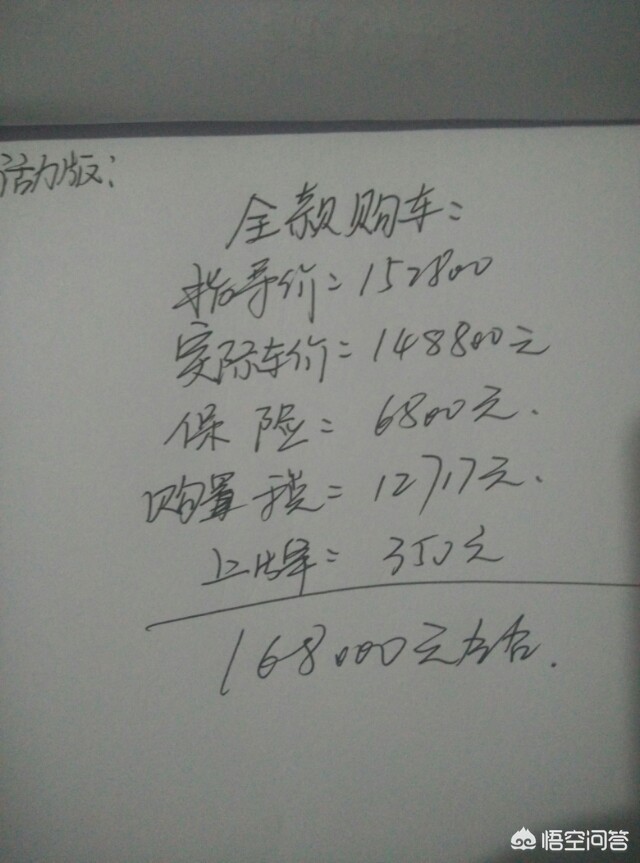 活力版:
全款购车:
指导价:152800
实际车价:148800元
保险:6800元.
购置税:12717元.
上牌:350元
168000元左右.
悟空问答